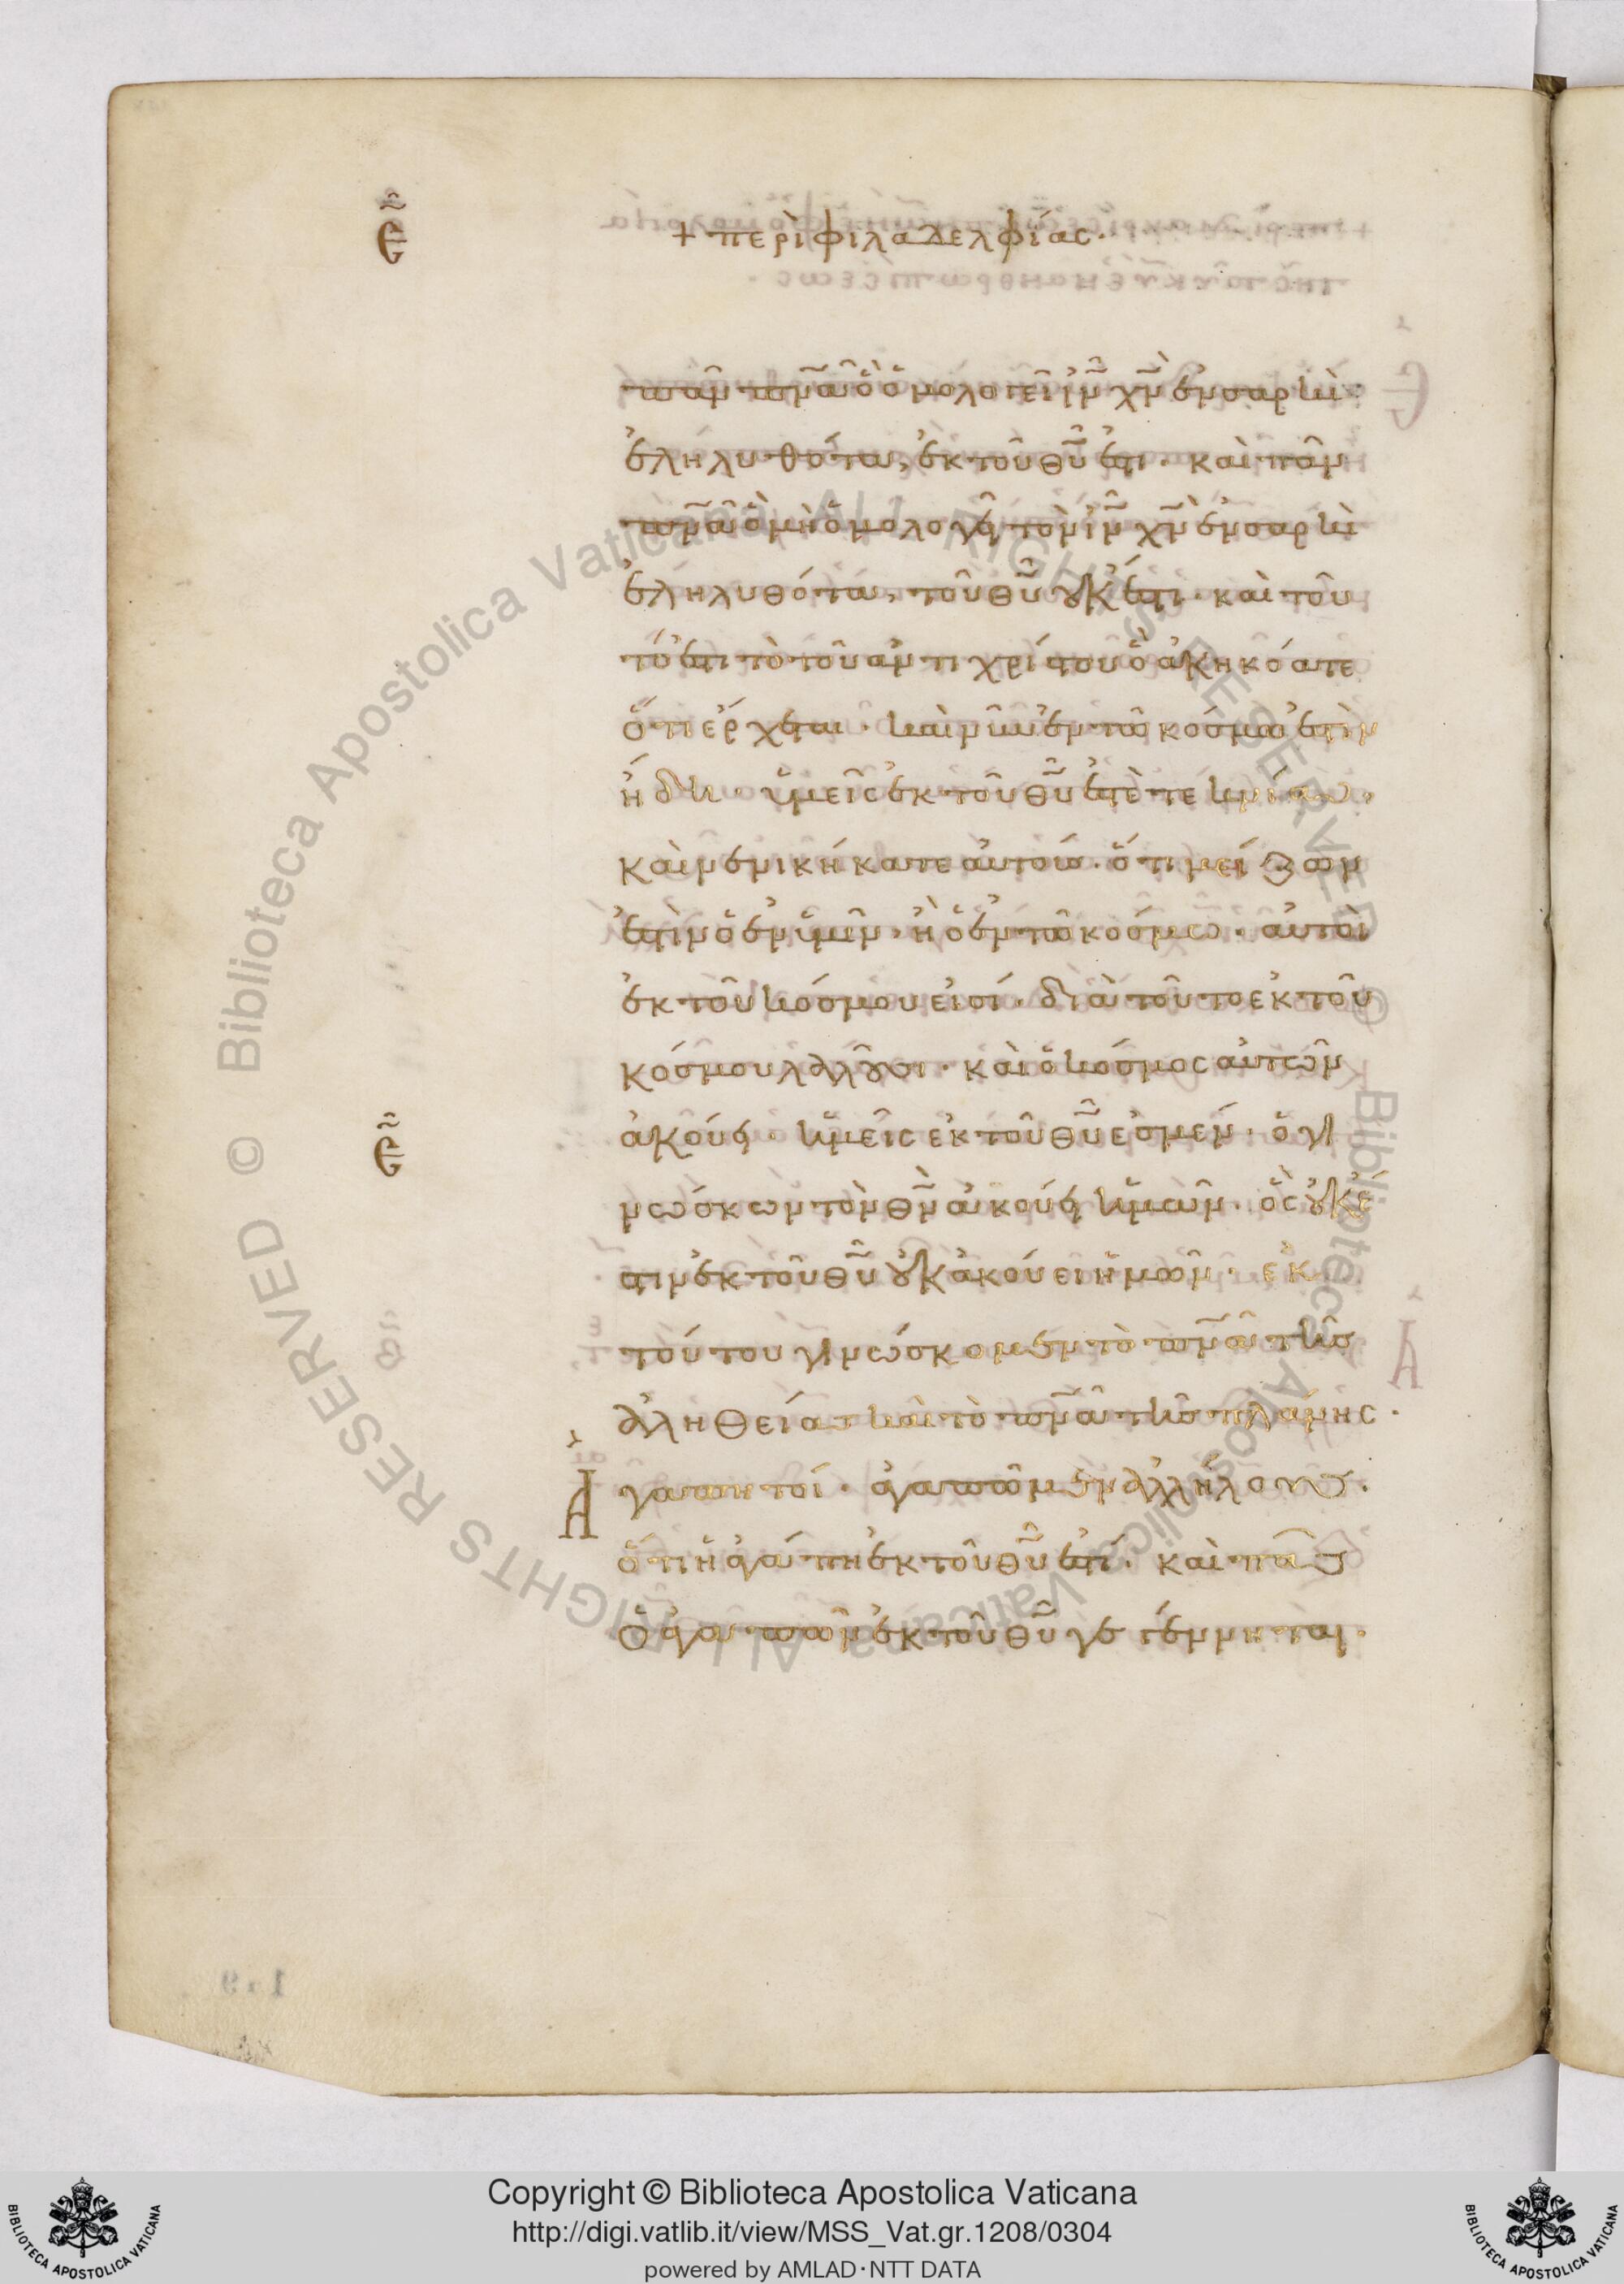 ε̃
+ περὶ φιλαδελφίας·
πᾶν πν̅α̅ ὃ ὁμολογεῖ ι̅ν̅ χ̅ν̅ ἐν σαρκὶ
ἐληλυθότα, ἐκ τοῦ θ̅υ̅ ἐστι· καὶ πᾶν
πν̅α̅ ὃ μὴ ὁμολογεῖ τὸν ι̅ν̅ χ̅ν̅ ἐν σαρκὶ
ἐληλυθότα, τοῦ θ̅υ̅ οὐκ ἔστι· καὶ τοῦ
τό ἐστι τὸ τοῦ ἀντιχρίστου ὃ ἀκηκόατε
ὅτι ἔρχεται· καὶ νῦν ἐν τῶ κόσμω ἐστὶν
ἤδη· ὑμεῖς ἐκ τοῦ θ̅υ̅ ἐστὲ τεκνία·
καὶ νενικήκατε αὐτούς· ὅτι μείζων
ἐστὶν ὁ ἐν ὑμῖν· ἢ ὁ ἐν τῶ κόσμω· αὐτοὶ
ἐκ τοῦ κόσμου εἰσί· διὰ τοῦτο ἐκ τοῦ
κόσμου λαλοῦσι· καὶ ὁ κόσμος αὐτῶν
ἀκούει· ἡμεῖς ἐκ τοῦ θ̅υ̅ ἐσμέν· ὁ γι
νώσκων τὸν θ̅ν̅ ἀκούει ἡμῶν· ὃς οὐκ ἔ
στιν ἐκ τοῦ θ̅υ̅ οὐκ ἀκούει ἡμῶν· ἐκ
τούτου γινώσκομεν τὸ πν̅α̅ τῆς
ἀληθείας καὶ τὸ πν̅α̅ τῆς πλάνης·
Ἀγαπητοί· ἀγαπῶμεν ἀλλήλους·
ὅτι ἡ ἀγάπη ἐκ τοῦ θ̅υ̅ ἐστί· καὶ πᾶς
ὁ ἀγαπῶν ἐκ τοῦ θ̅υ̅ γεγέννηται·
© Biblioteca Apostolica Vaticana ALL RIGHTS RESERVED
© Biblioteca Apostolica Vaticana ALL RIGHTS RESERVED
BIBLIOTECA APOSTOLICA VATICANA
Copyright © Biblioteca Apostolica Vaticana
http://digi.vatlib.it/view/MSS_Vat.gr.1208/0304
powered by AMLAD·NTT DATA
BIBLIOTECA APOSTOLICA VATICANA